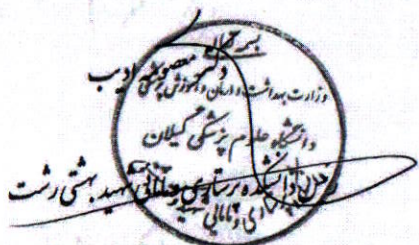 بسمه تعالی
دکتر معصومه ادیب
وزارت بهداشت و درمان و آموزش پزشکی
دانشگاه علوم پزشکی گیلان
دانشکده پرستاری مامائی شهید بهشتی رشت
پرستاری و مامایی